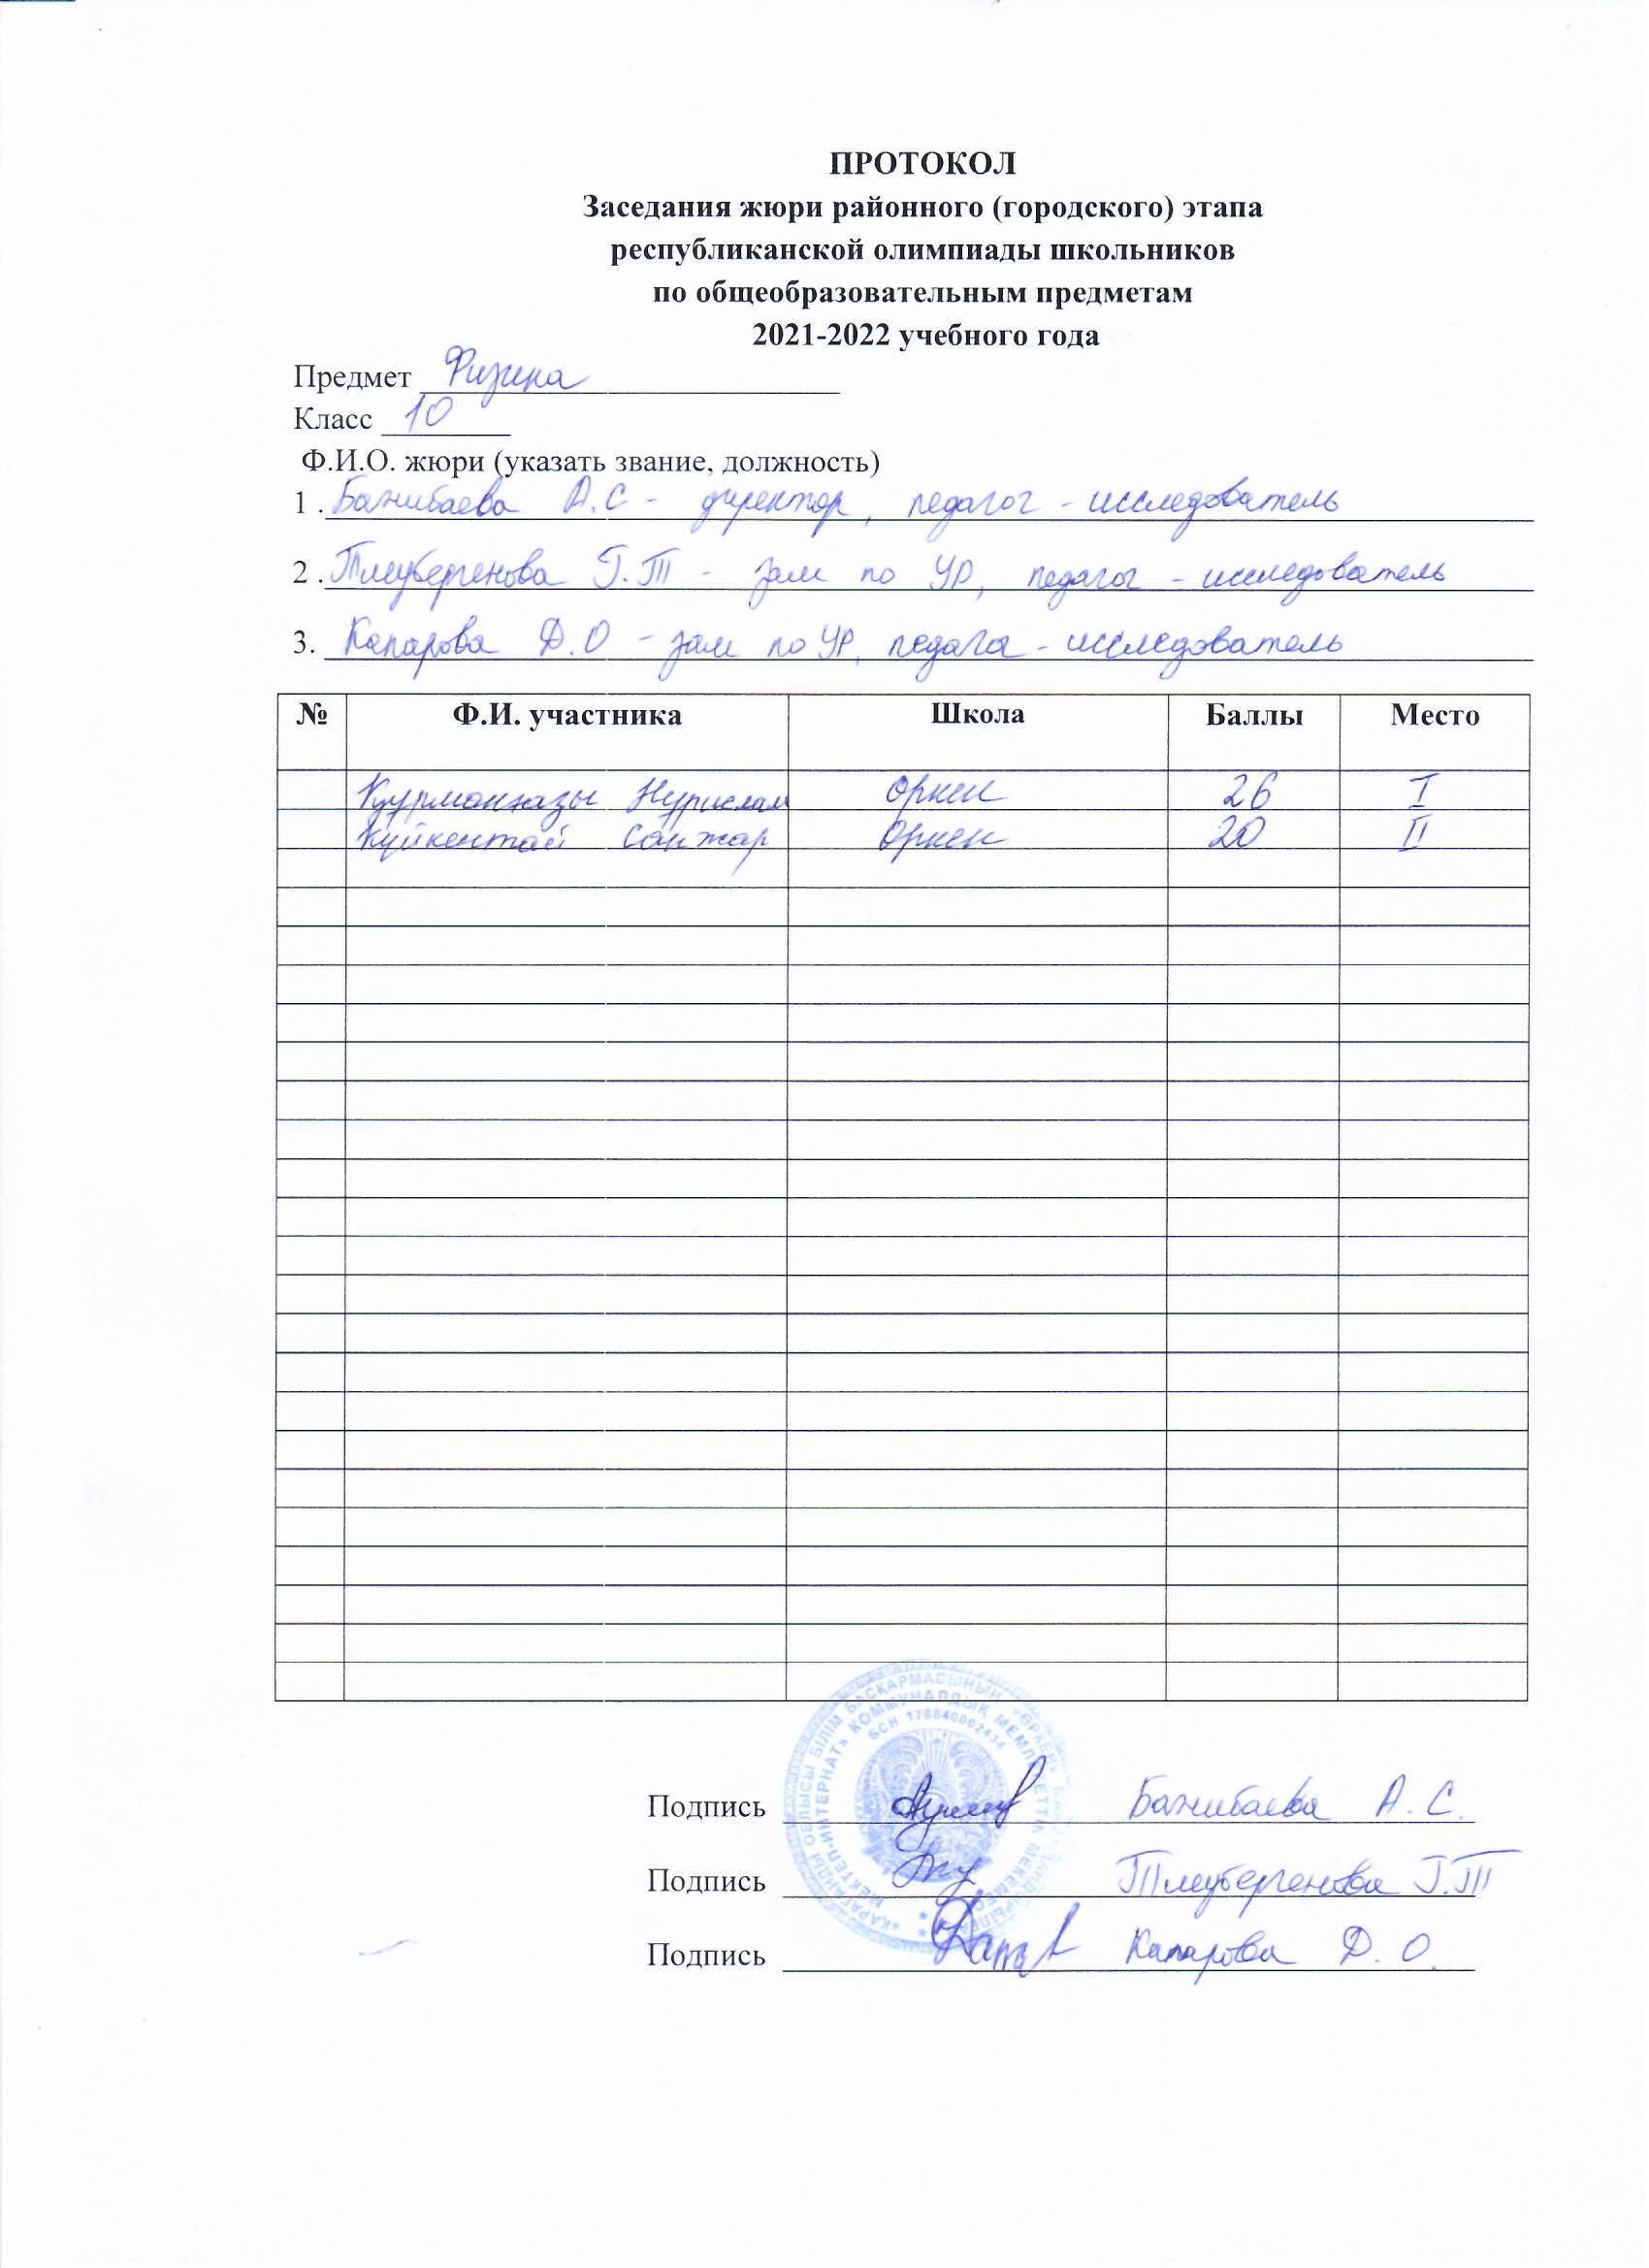 ПРОТОКОЛ
Заседания жюри районного (городского) этапа
республиканской олимпиады школьников
по общеобразовательным предметам
2021-2022 учебного года
Предмет Физика
Класс 10
Ф.И.О. жюри (указать звание, должность)
1 . Бажибаева А.С - директор, педагог - исследователь
2 . Тлеубергенова Г.Т - зам по УР, педагог - исследователь
3. Капарова Д.О - зам по УР, педагог - исследователь
№ Ф.И. участника Школа Баллы Место
Курманказы Нурислам Оркен 26 I
Куйкентай Санжар Оркен 20 II
БСН 170840002434
Подпись Бажибаева А.С.
Подпись Тлеубергенова Г.Т
Подпись Капарова Д.О.